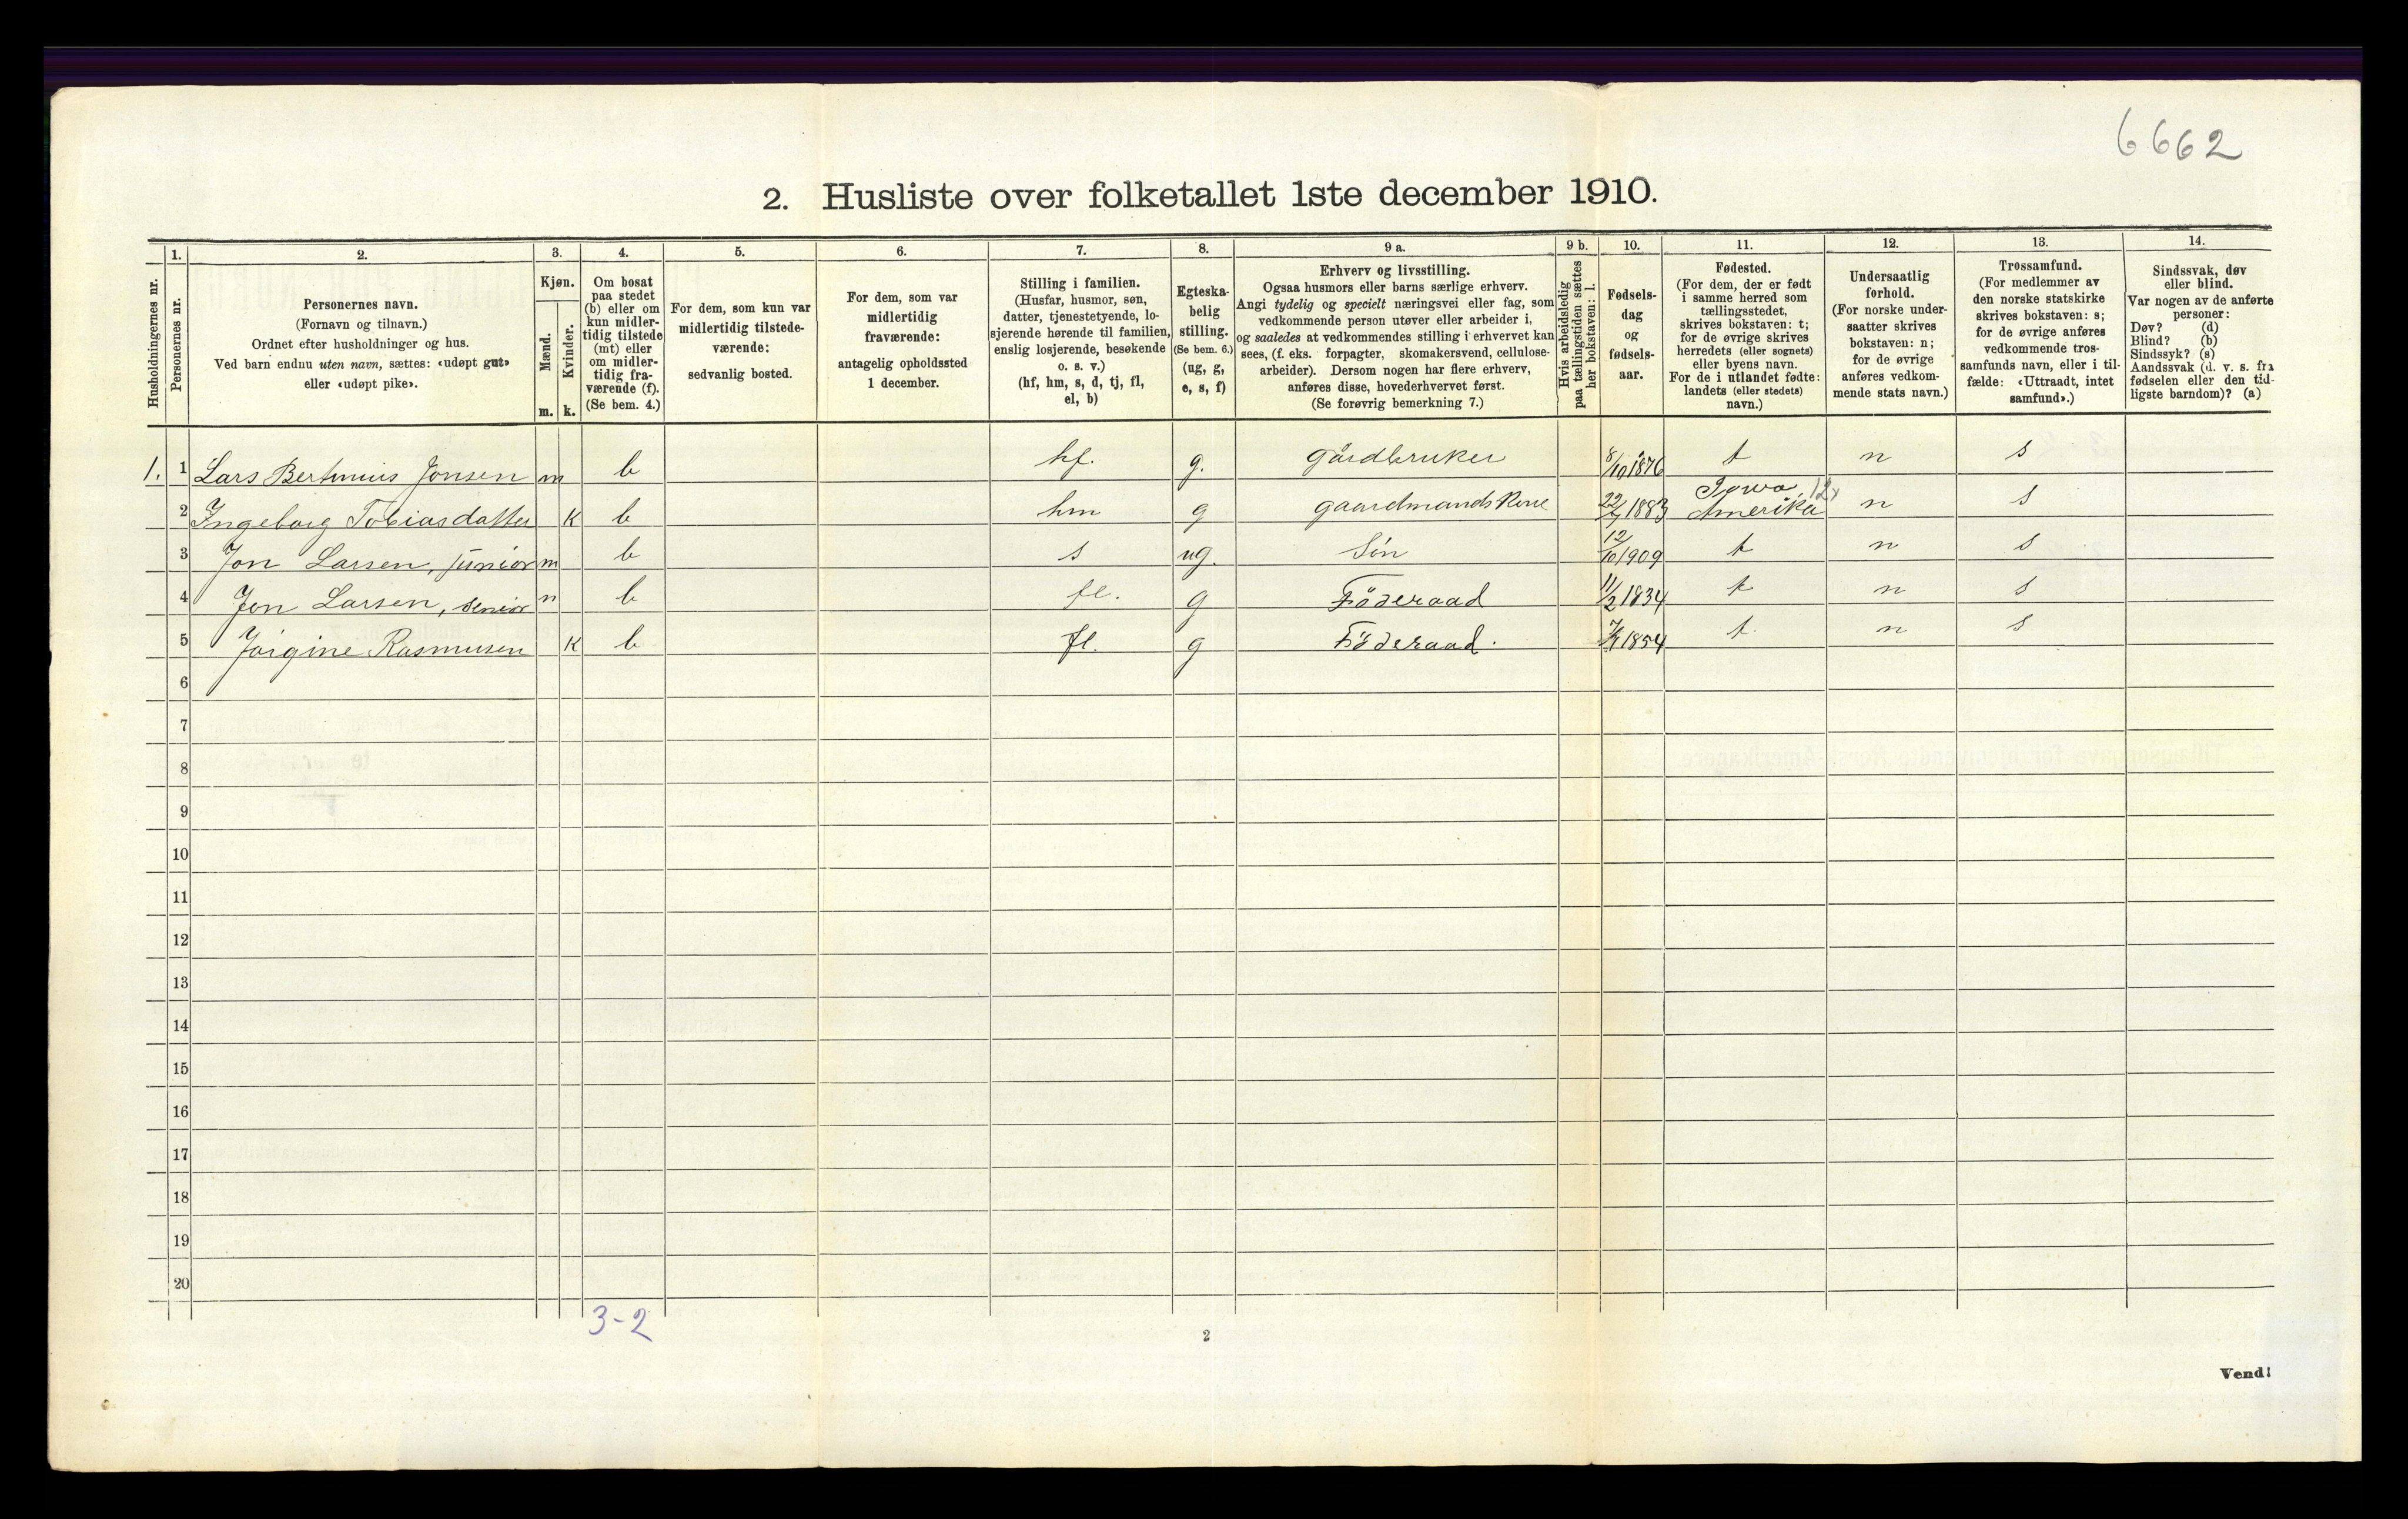 6662
2. Husliste over folketallet 1ste december 1910.
Husholdningernes nr.
1.
Personernes nr.
2.
Personernes navn.
(Fornavn og tilnavn.)
Ordnet efter husholdninger og hus.
Ved barn endnu uten navn, sættes: «udøpt gut»
eller «udøpt pike».
3.
Kjøn.
Mænd.
Kvinder.
m. k.
4.
Om bosat
paa stedet
(b) eller om
kun midler-
tidig tilstede
(mt) eller
om midler-
tidig fra-
værende (f).
(Se bem. 4.)
5.
For dem, som kun var
midlertidig tilstede-
værende:
sedvanlig bosted.
6.
For dem, som var
midlertidig
fraværende:
antagelig opholdssted
1 december.
7.
Stilling i familien.
(Husfar, husmor, søn,
datter, tjenestetyende, lo-
sjerende hørende til familien,
enslig losjerende, besøkende
o. s. v.)
(hf, hm, s, d, tj, fl,
el, b)
8.
Egteska-
belig
stilling.
(Se bem. 6.)
(ug, g,
e, s, f)
9 a.
Erhverv og livsstilling.
Ogsaa husmors eller barns særlige erhverv.
Angi tydelig og specielt næringsvei eller fag, som
vedkommende person utøver eller arbeider i,
og saaledes at vedkommendes stilling i erhvervet kan
sees, (f. eks. forpagter, skomakersvend, cellulose-
arbeider). Dersom nogen har flere erhverv,
anføres disse, hovederhvervet først.
(Se forøvrig bemerkning 7.)
9 b.
Hvis arbeidsledig
paa tællingstiden sættes
her bokstaven: l.
10.
Fødsels-
dag
og
fødsels-
aar.
11.
Fødested.
(For dem, der er født
i samme herred som
tællingsstedet,
skrives bokstaven: t;
for de øvrige skrives
herredets (eller sognets)
eller byens navn.
For de i utlandet fødte:
landets (eller stedets)
navn.)
12.
Undersaatlig
forhold.
(For norske under-
saatter skrives
bokstaven: n;
for de øvrige
anføres vedkom-
mende stats navn.)
13.
Trossamfund.
(For medlemmer av
den norske statskirke
skrives bokstaven: s;
for de øvrige anføres
vedkommende tros-
samfunds navn, eller i til-
fælde: «Uttraadt, intet
samfund».)
14.
Sindssvak, døv
eller blind.
Var nogen av de anførte
personer:
Døv? (d)
Blind? (b)
Sindssyk? (s)
Aandssvak (d. v. s. fra
fødselen eller den tid-
ligste barndom)? (a)
1. 1 Lars Bertinius Jonsen m b hf. g. gårdbruker 8/10 1876 t n s
2 Ingeborg Tobiasdatter k b hm g gaardmandskone 1883 Iowa, Amerika 12x n s
3 Jon Larsen, junior m b s ug. Sön 12/10 1909 t n s
4 Jon Larsen, senior m b fl. g Föderaad 11/2 1834 t n s
5 Jörgine Rasmusen k b fl. g Föderaad. 1854 t. n s
6
7
8
9
10
11
12
13
14
15
16
17
18
19
20
3-2
2
Vend!